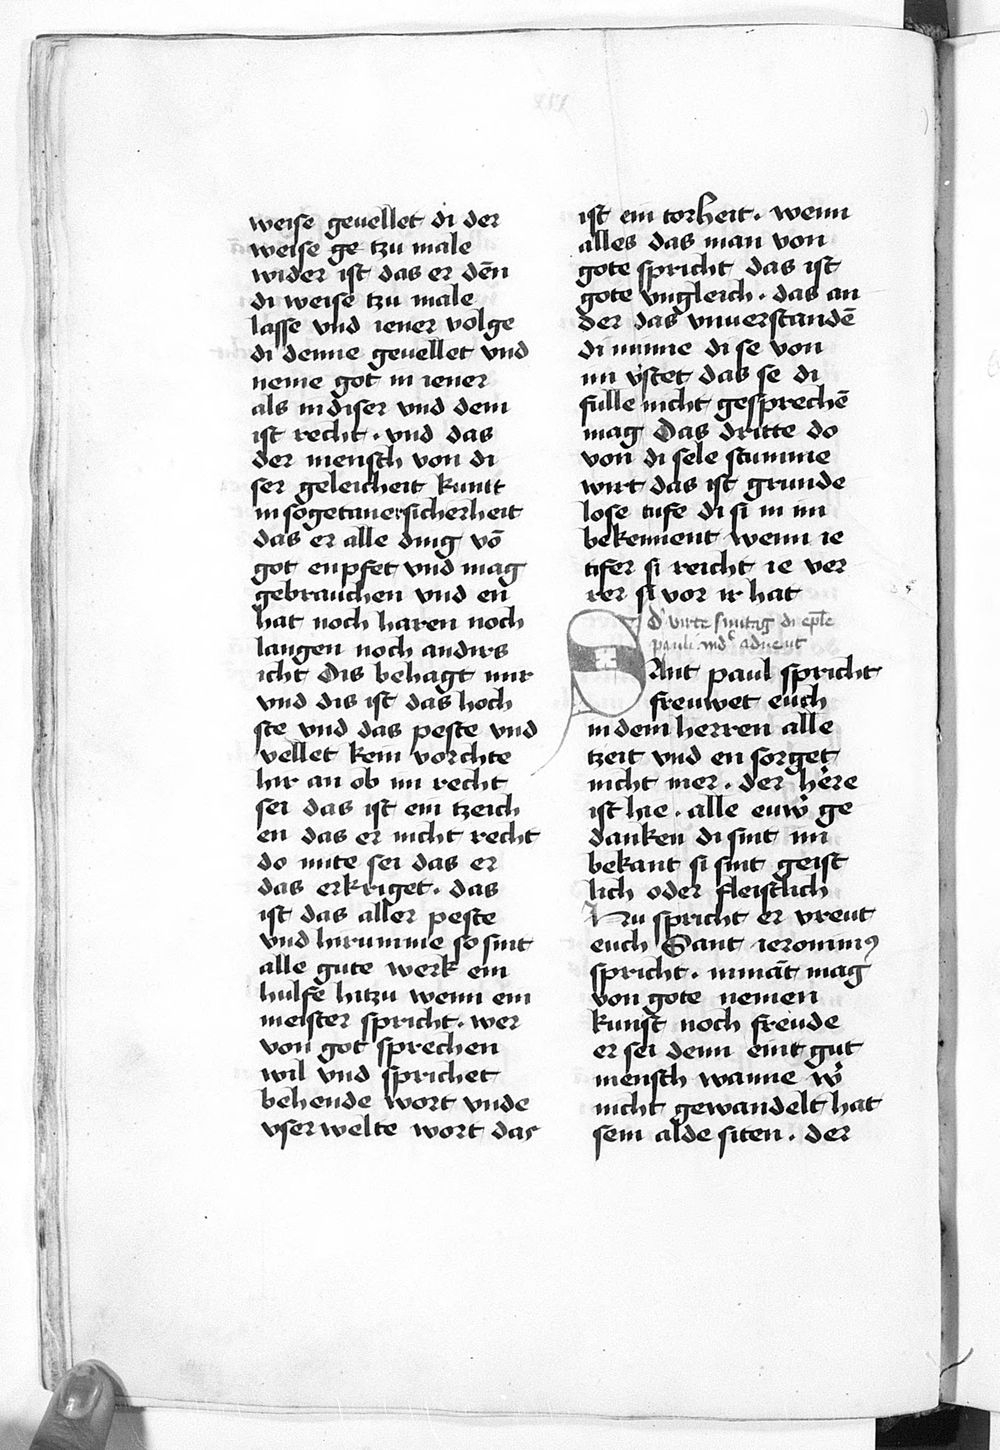 weise geuellet di der
weise ge tzu male
wider ist das er dēn
di weise tzu male
lasse vnd iener volge
di denne geuellet vnd
neme got in iener
als in diser vnd dem
ist recht · vnd das
der mensch von di
ser geleicheit kumt
in sogetanersicherheit
das er alle ding vō
got enpfet vnd mag
gebrauchen vnd en
hat noch haren noch
langen noch anders
icht Dis behagt mir
vnd dis ist das hoch
ste vnd das peste vnd
vellet kein vorchte
hir an ob im recht
sei das ist ein tzeich
en das er nicht recht
do mite sei das er
das erkriget · das
ist das aller peste
vnd hirumme so sint
alle gute werk ein
hulfe hitzu wenn ein
meister spricht · wer
von got sprechen
wil vnd sprichet
behende wort vnde
vserwelte wort das
ist ein torheit · wenn
alles das man von
gote spricht das ist
gote vngleich · das an
der das vnuerstandē
di minne di se von
im v̓stet das se di
fulle nicht gesprechē
mag Das dritte do
von di sele stumme
wirt das ist grunde
lose tufe di si in im
bekennent wenn ie
tifer si reicht ie ver
rer si vor ir hat
D' virte suntag di ep̄le
pauli in dᶜ aduent
SAnt paul spricht
freuwet euch
in dem herren alle
tzeit vnd en sorget
nicht mer · der h̓ere
ist hie · alle euw̓ ge
danken di sint im
bekant si sint geist
lich oder fleistlich
Nu spricht er vreut
euch Sant ieronimꝰ
spricht · nimāt mag
von gote nemen
kunst noch freude
er sei denn eint gut
mensch wanne w̓
nicht gewandelt hat
sein alde siten · der